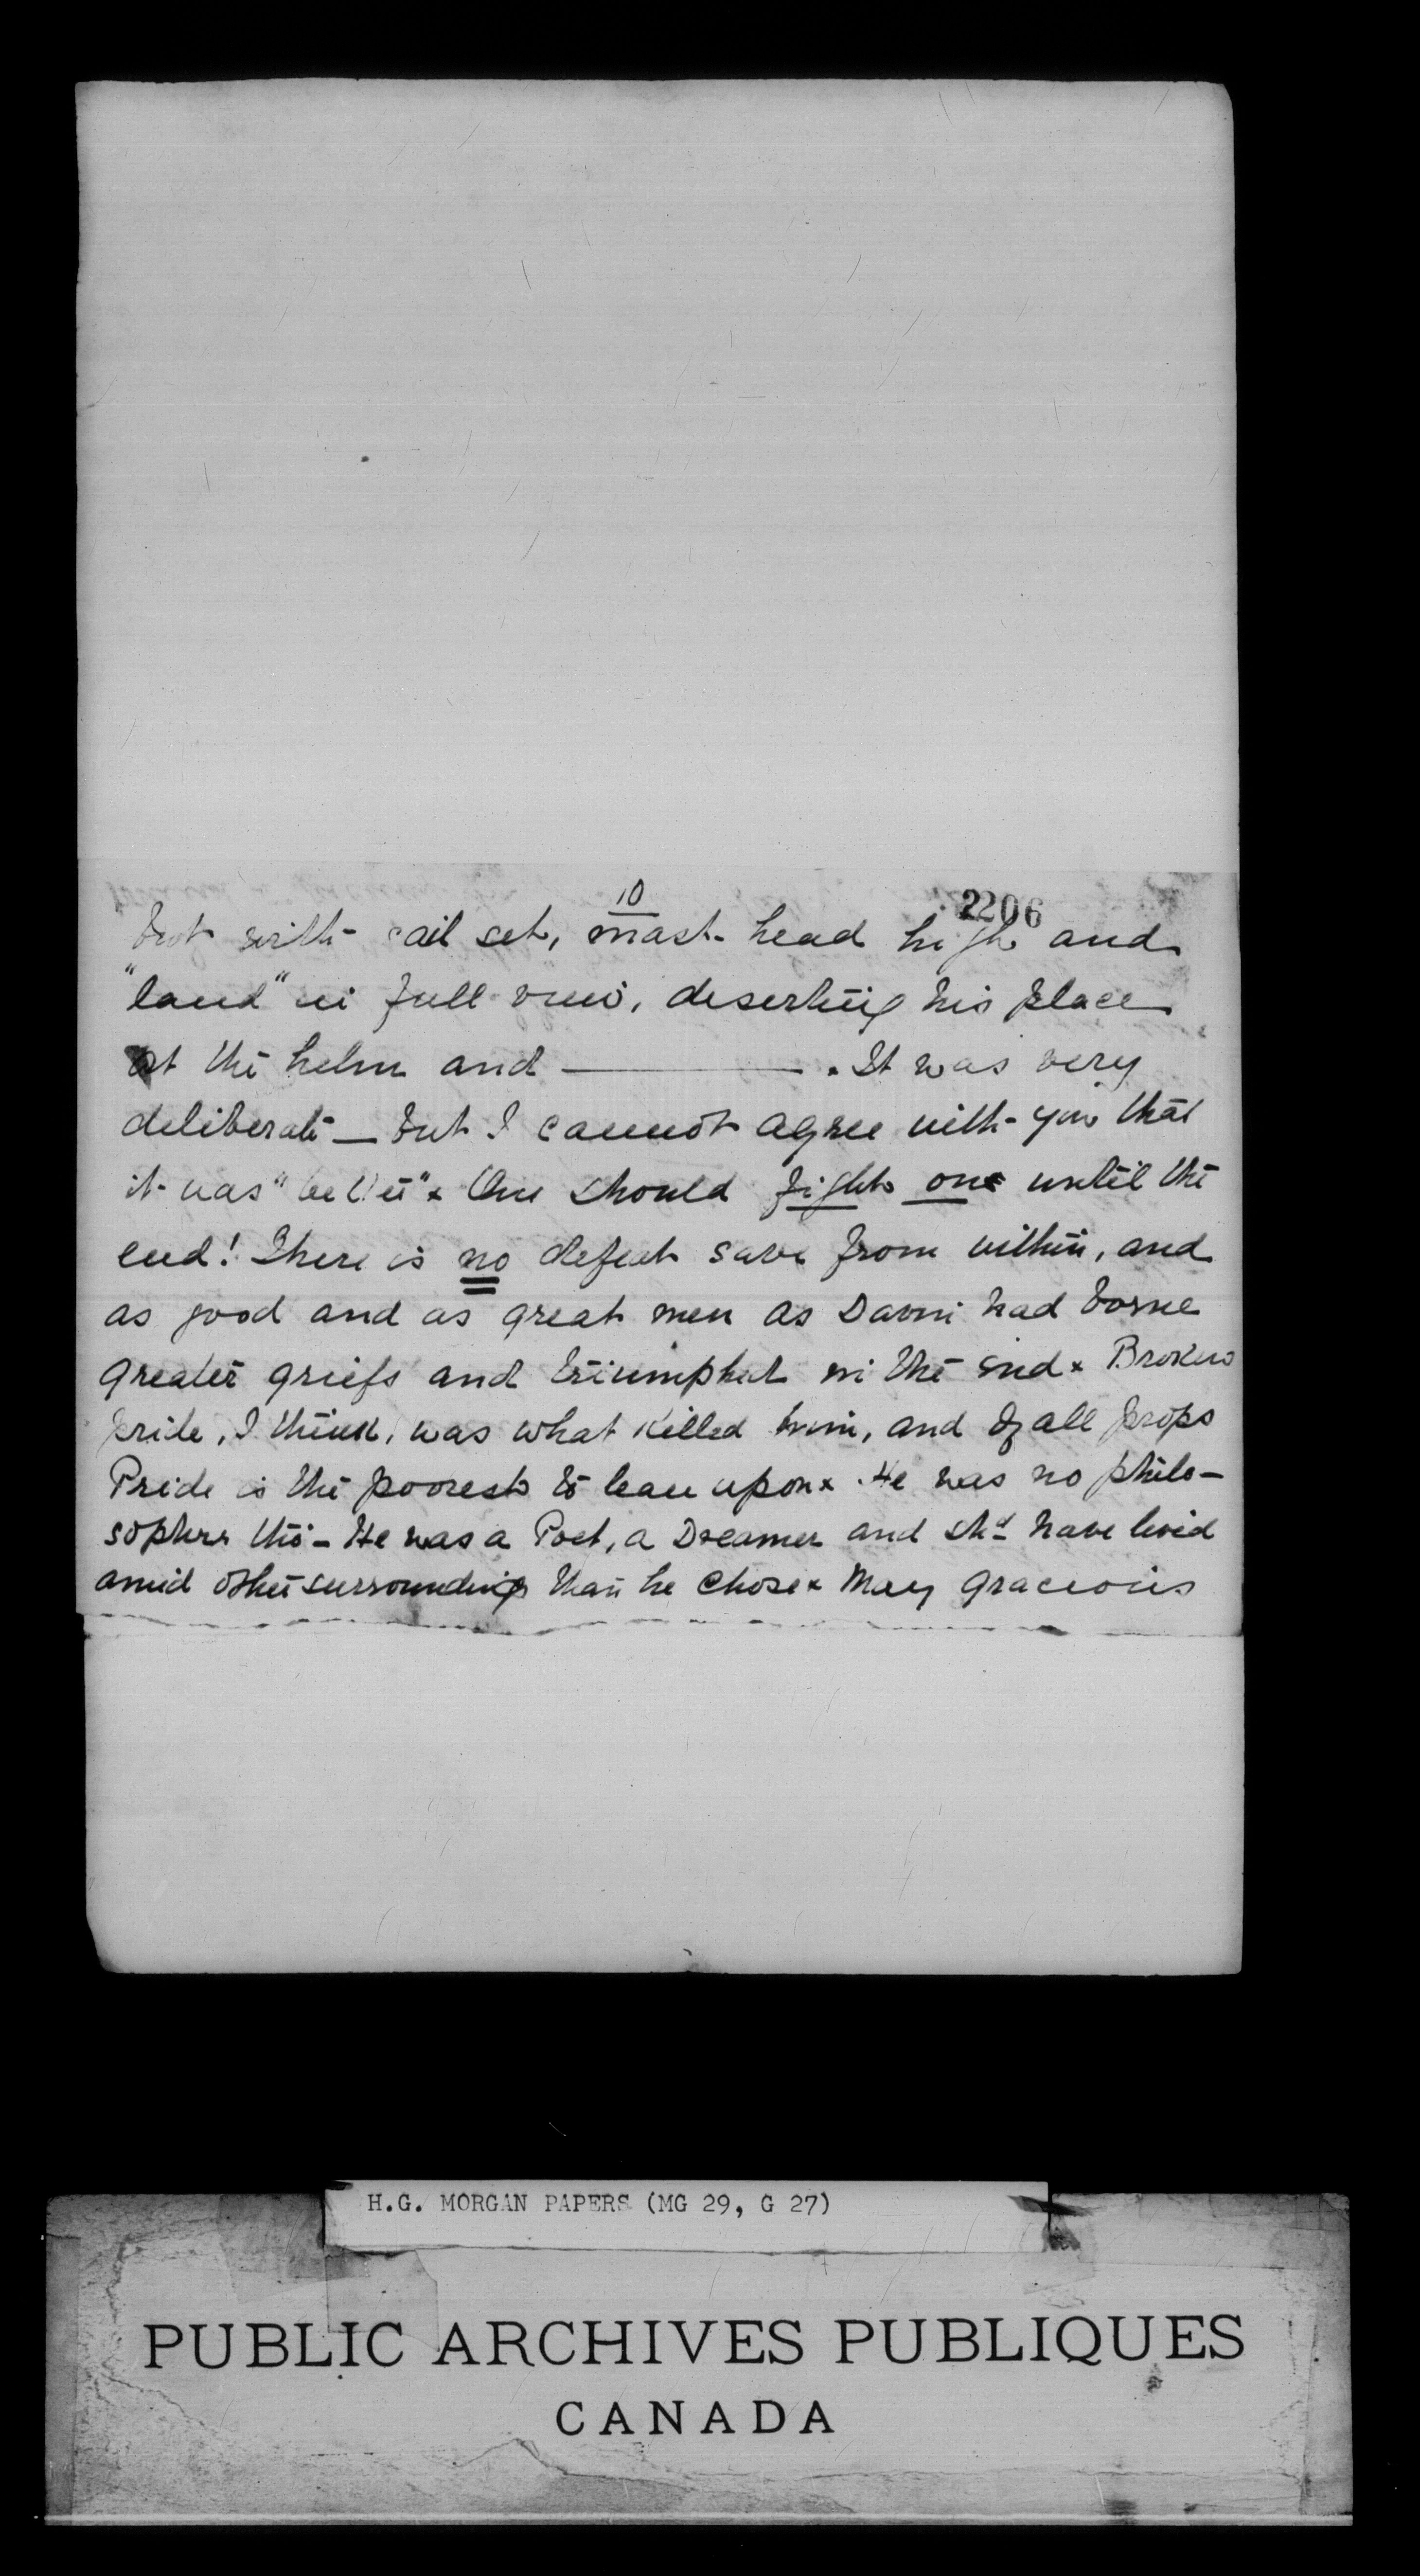 10
2206
but with sail set, mast-head high and
"land" in full view, deserting his place
at the helm and ———. It was very
deliberate — but I cannot agree with you that
it was "better" x One should fight on until the
end! There is no defeat save from within, and
as good and as great men as Davin had borne
greater griefs and triumphed in the end x Broken
pride, I think, was what killed him, and of all props
Pride is the poorest to lean upon x He was no philo-
sopher tho' - He was a Poet, a Dreamer and shd have lived
amid other surroundings than he chose x May gracious
H.G. MORGAN PAPERS (MG 29, G 27)
PUBLIC ARCHIVES PUBLIQUES
CANADA